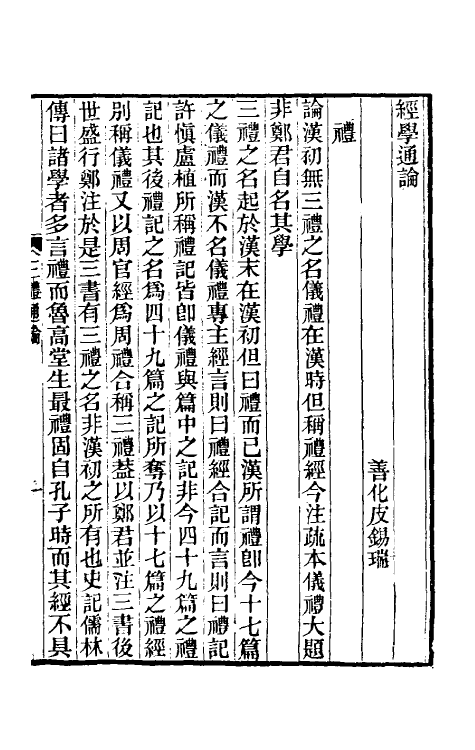 經學通論
善化皮錫瑞
禮
論漢初無三禮之名儀禮在漢時但稱禮經今注疏本儀禮大題
非鄭君自名其學
三禮之名起於漢末在漢初但曰禮而已漢所謂禮卽今十七篇
之儀禮而漢不名儀禮專主經言則曰禮經合記而言則曰禮記
許愼盧植所稱禮記皆卽儀禮與篇中之記非今四十九篇之禮
記也其後禮記之名爲四十九篇之記所奪乃以十七篇之禮經
別稱儀禮又以周官經爲周禮合稱三禮葢以鄭君並注三書後
世盛行鄭注於是三書有三禮之名非漢初之所有也史記儒林
傳曰諸學者多言禮而魯高堂生最禮固自孔子時而其經不具
三禮通論